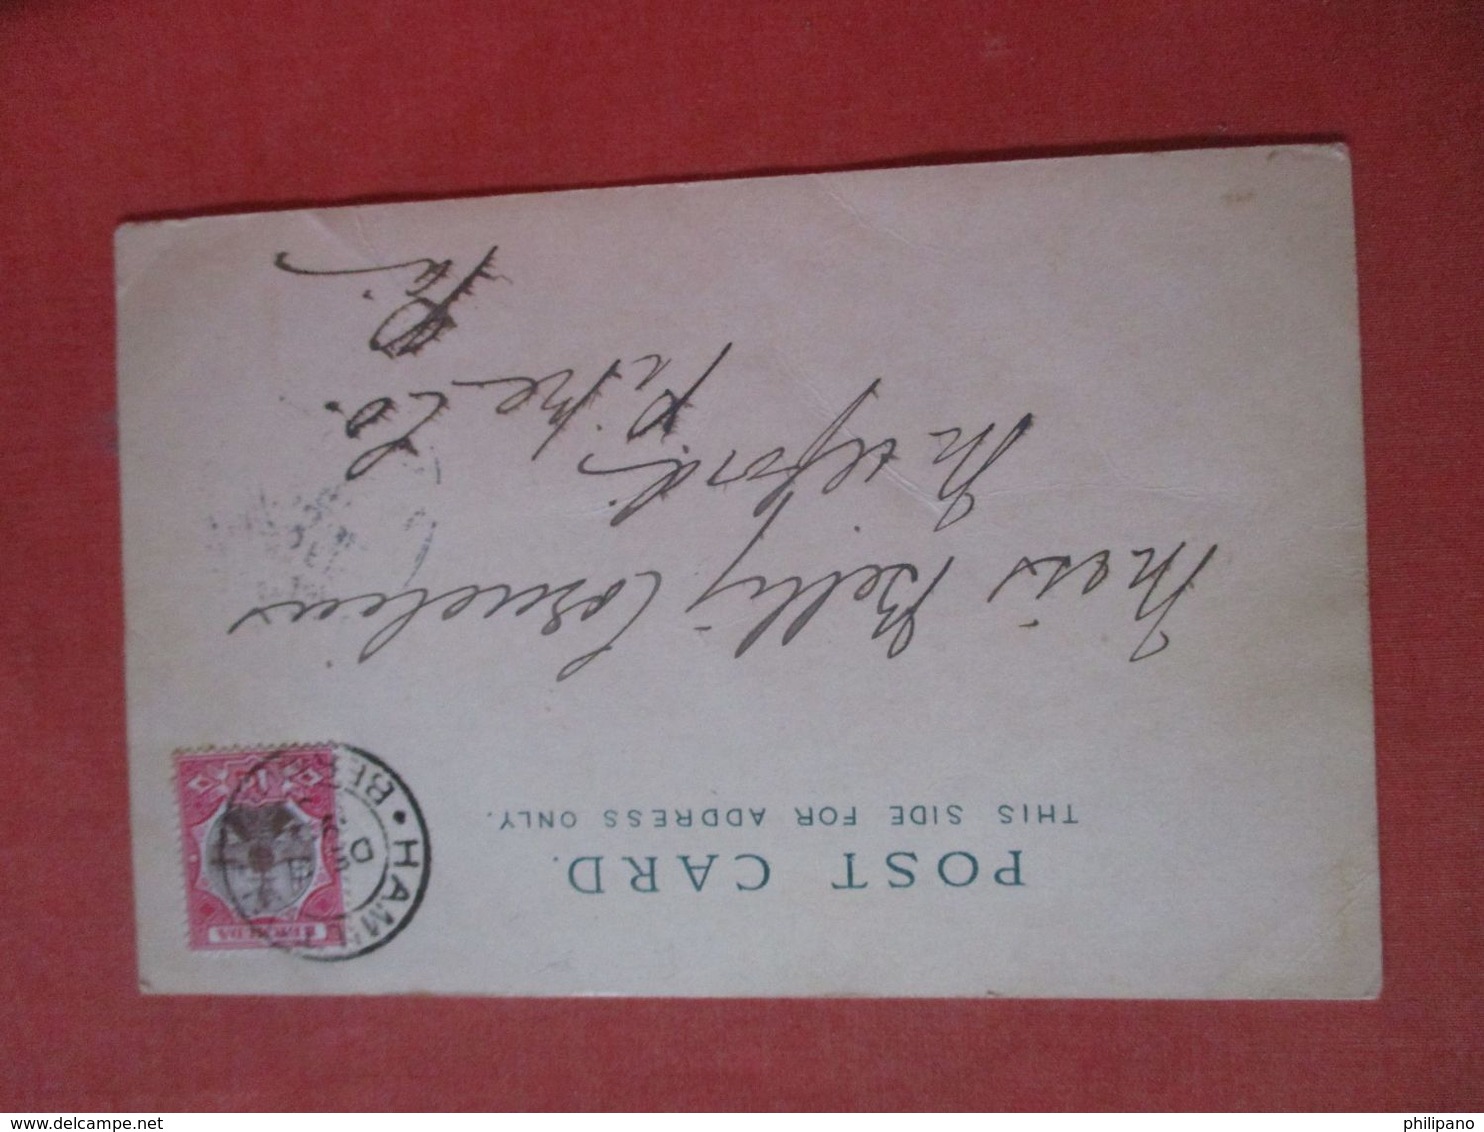 POST CARD.
THIS SIDE FOR ADDRESS ONLY.
HAM
BE
Miss Betty Cornelius
Milford,
Pike Co.
Pa.
www.delcampe.net
philipano